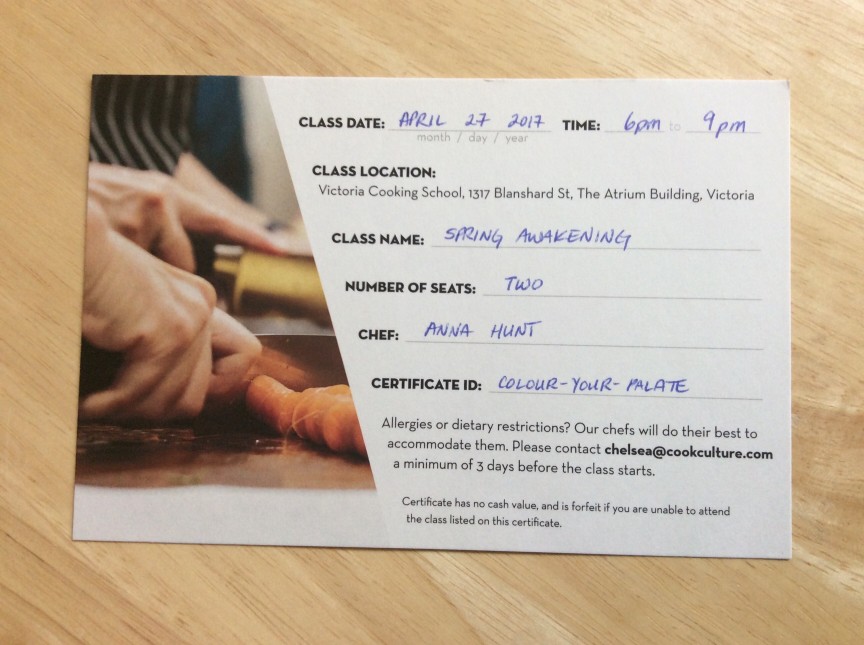 CLASS DATE: APRIL 27 2017 TIME: 6pm to 9pm
month / day / year
CLASS LOCATION:
Victoria Cooking School, 1317 Blanshard St, The Atrium Building, Victoria
CLASS NAME: SPRING AWAKENING
NUMBER OF SEATS: TWO
CHEF: ANNA HUNT
CERTIFICATE ID: COLOUR-YOUR-PALATE
Allergies or dietary restrictions? Our chefs will do their best to
accommodate them. Please contact chelsea@cookculture.com
a minimum of 3 days before the class starts.
Certificate has no cash value, and is forfeit if you are unable to attend
the class listed on this certificate.